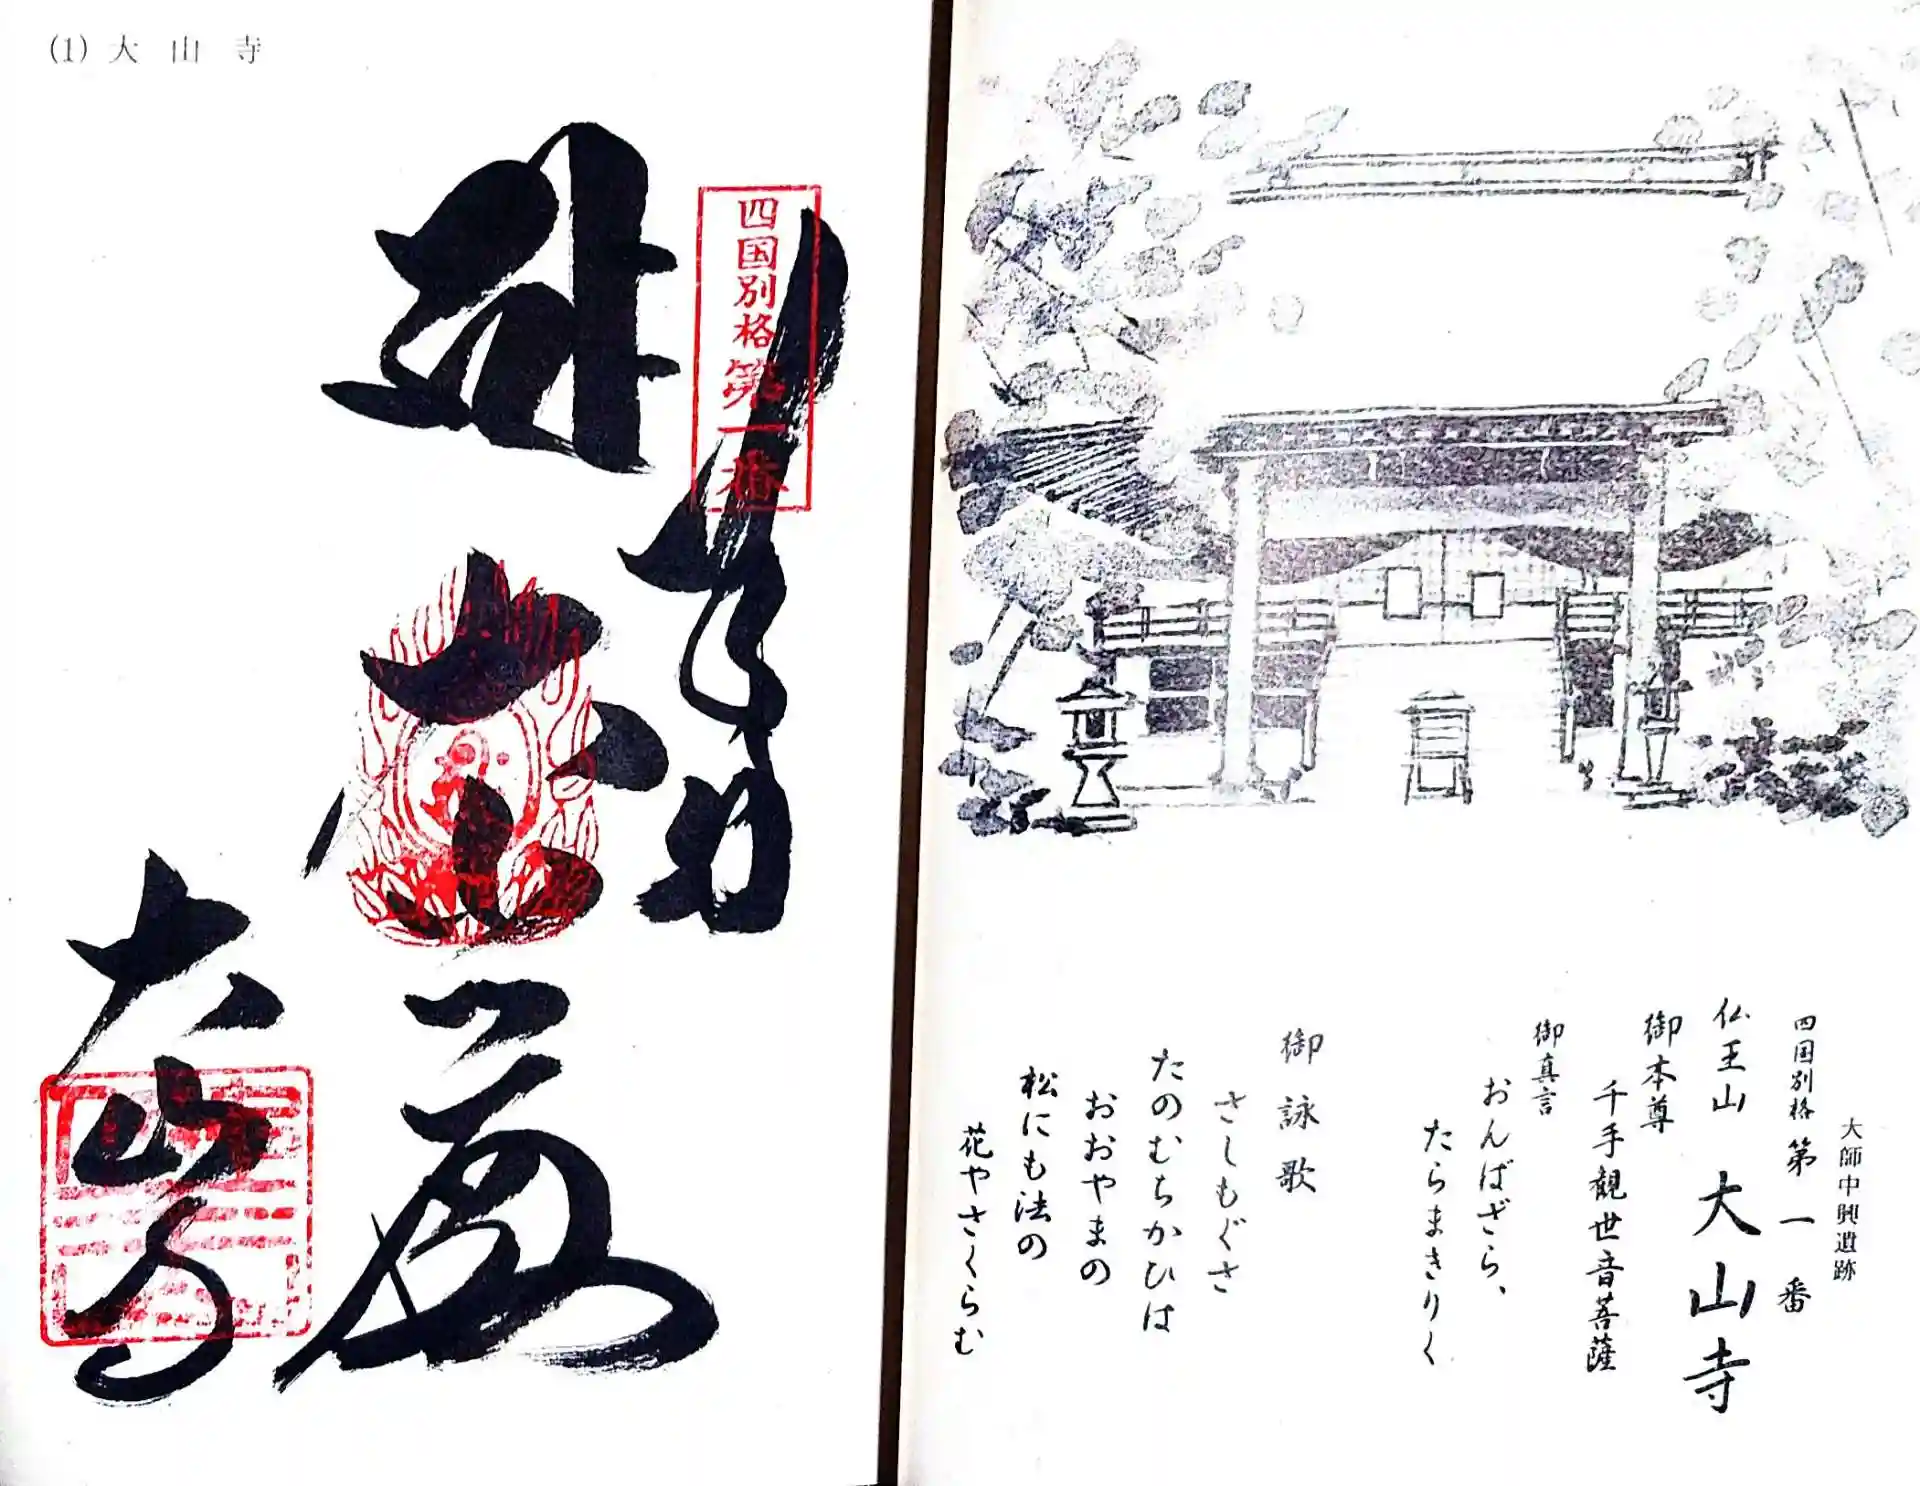 (1) 大山寺
四国別格第一番
奉
大山寺
大師中興遺跡
四国別格 第一番
仏王山 大山寺
御本尊
千手観世音菩薩
御真言
おんばざら、
たらまきりく
御詠歌
さしもぐさ
たのむちかひは
おおやまの
松にも法の
花やさくらむ